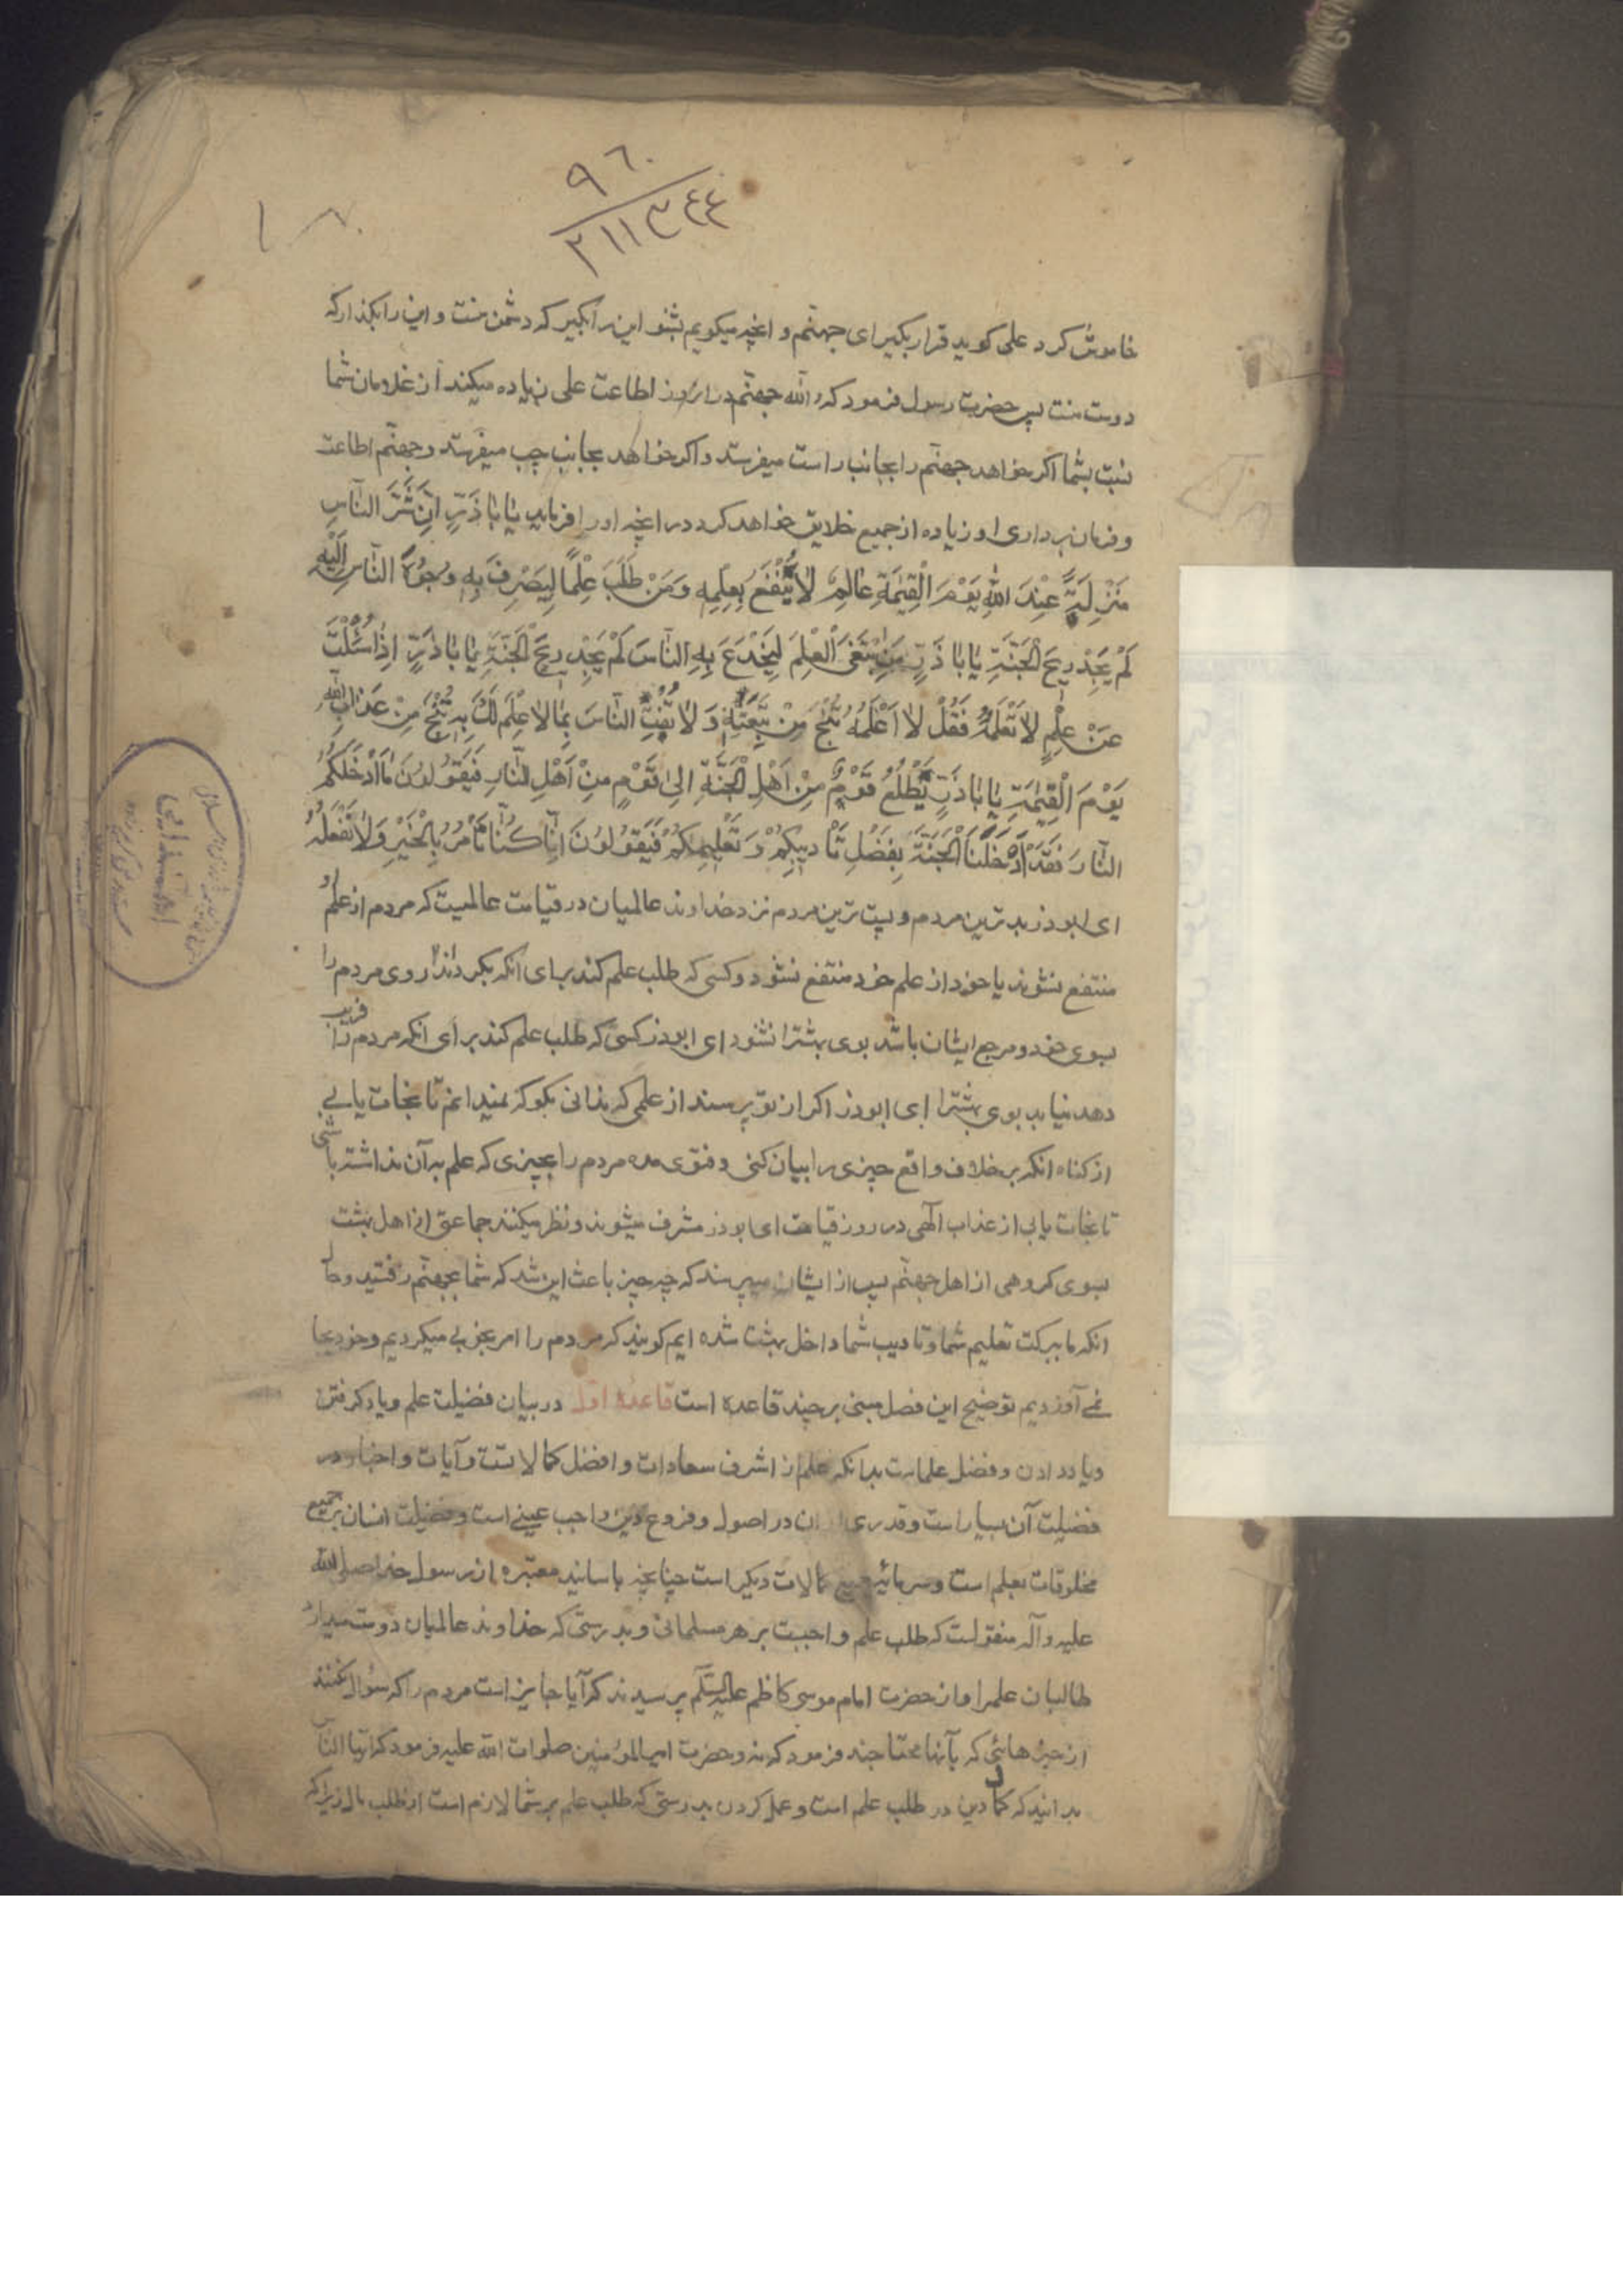 ٩٦٠
٢١١٣٤٤
خاموش کرد علی کوید قرار بکیر ای جهنّم و انچه میکویم بشنو این را بکیر که دشمن منت و این را بکذار که
دوست منت پس حضرت رسول فرمود که و الله جهنّم در ان روز اطاعت علی زیاده میکند از غلامان شما
نبت بشما اکر خواهد جهنّم را بجانب راست میفرستد و اکر خواهد بجانب چپ میفرستد و جهنّم اطاعت
و فرمان برداری او زیاده از جمیع خلایق خواهد کرد در انچه او را فرماید یٰا بٰا ذَرٍّ اِنَّ شَرَّ النّٰاسِ
مَنْزِلَةً عِنْدَ اللّٰهِ یَوْمَ الْقِیٰمَةِ عٰالِمٌ لٰا یُنْتَفَعُ بِعِلْمِهِ وَمَنْ طَلَبَ عِلْمًا لِیَصْرِفَ بِهِ وُجُوْهَ النّٰاسِ اِلَیْهِ
لَمْ یَجِدْ رِیحَ الْجَنَّةِ یٰا بٰا ذَرٍّ مَنِ ابْتَغَی الْعِلْمَ لِیَخْدَعَ بِهِ النّٰاسَ لَمْ یَجِدْ رِیحَ الْجَنَّةِ یٰا بٰا ذَرٍّ اِذٰا سُئِلْتَ
عَنْ عِلْمٍ لٰا تَعْلَمُهُ فَقُلْ لٰا اَعْلَمُهُ تَنْجُ مِنْ تَبِعَتِهِ وَ لٰا تُفْتِ النّٰاسَ بِمٰا لٰا عِلْمَ لَکَ بِهِ تَنْجُ مِنْ عَذٰابِ اللّٰهِ
یَوْمَ الْقِیٰمَةِ یٰا بٰا ذَرٍّ یَطَّلِعُ قَوْمٌ مِنْ اَهْلِ الْجَنَّةِ اِلیٰ قَوْمٍ مِنْ اَهْلِ النّٰارِ فَیَقُوْلُوْنَ مٰا اَدْخَلَکُمُ
النّٰارَ فَقَدْ اُدْخِلْنَا الْجَنَّةَ بِفَضْلِ تَأْدِیبِکُمْ وَ تَعْلِیمِکُمْ فَیَقُوْلُوْنَ اِنّٰا کُنّٰا نَأْمُرُ بِالْخَیْرِ وَلٰا نَفْعَلُهُ
ای ابوذر بدترین مردم و پست ترین مردم نزد خداوند عالمیان در قیامت عالمیست که مردم از علم او
منتفع نشوند یا خود از علم خود منتفع نشود و کسی که طلب علم کند برای انکه بکرداند روی مردم را
بسوی خود و مرجع ایشان باشد بوی بهشترا نشنود ای ابوذر کسی که طلب علم کند برای انکه مردم را فریب
دهد نیابد بوی بهشترا ای ابوذر اکر از تو پرسند از علمی که ندانی بکو که نمیدانم تا نجات یابی
از کناه انکه بر خلاف واقع چیزی را بیان کنی و فتوی مده مردم را بچیزی که علم به آن نداشته باشی
تا نجات یابی از عذاب الهی در روز قیامت ای ابوذر مشرف میشوند و نظر میکنند جماعتی از اهل بهشت
بسوی کروهی از اهل جهنّم پس از ایشان میپرسند که چه چیز باعث این شد که شما بجهنّم رفتید و حال
انکه ما ببرکت تعلیم شما و تادیب شما داخل بهشت شده ایم کویند که مردم را امر بخوبی میکردیم و خود بجا
نمی آوردیم توضیح این فصل مبنی بر چند قاعده است قاعدهٔ اوّل در بیان فضیلت علم و یاد کرفتن
و یاد دادن و فضل علماست بدانکه علم از اشرف سعادات و افضل کمالاتست و آیات و اخبار در
فضیلت آن بسیار است و قدری از ان در اصول و فروع دین واجب عینی است و فضیلت انسان بر جمیع
مخلوقات بعلم است و سرمایهٔ جمیع کمالات دیکر است چنانچه باسانید معتبره از رسول خدا صلی الله
علیه و آله منقولست که طلب علم واجبست بر هر مسلمانی و بدرستی که خداوند عالمیان دوست میدارد
طالبان علمرا و از حضرت امام موسی کاظم علیه السّلم پرسیدند که آیا جایز است مردم را که سؤال نکنند
از چیزهائی که بآنها محتاجند فرمود که نه و حضرت امیر المؤمنین صلوات الله علیه فرمود که ایّها النّاس
بدانید که کمال دین در طلب علم است و عمل کردن بدرستی که طلب علم بر شما لازم است از طلب مال زیرا که